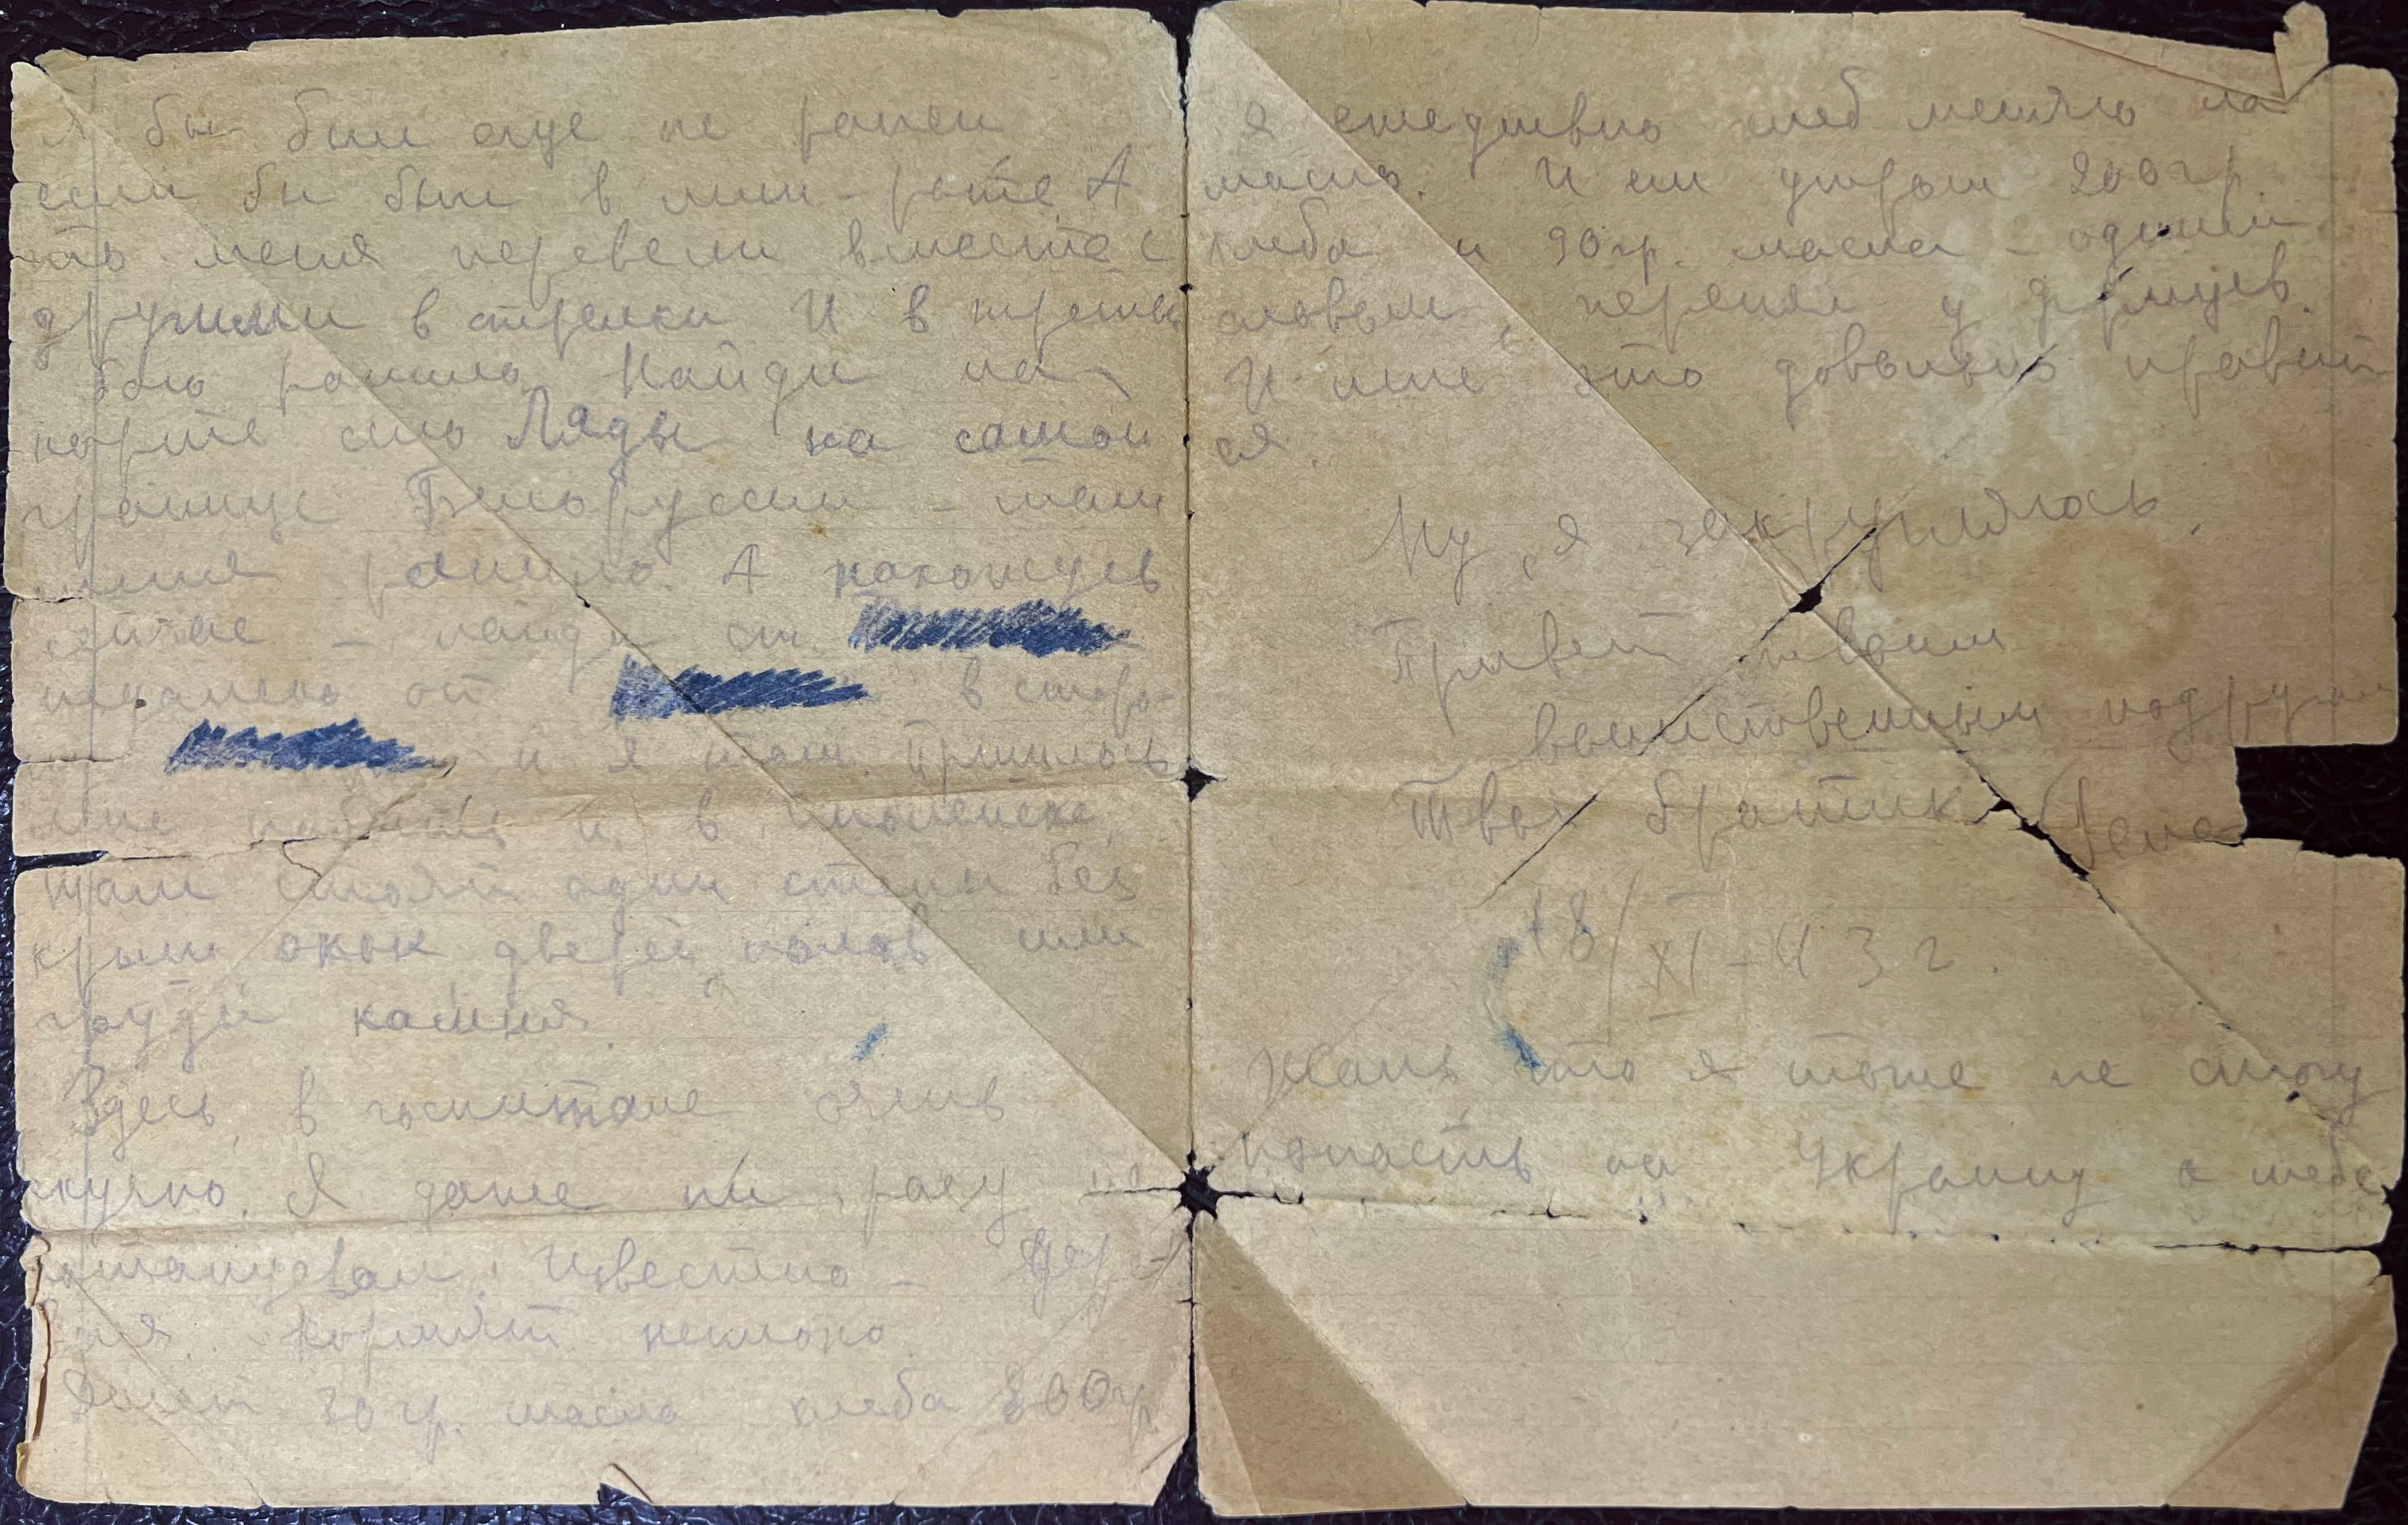 я бы был еще не ранен
если бы был в мин-роте. А
то меня перевели вместе с
другими в стрелки И в третьем
бою ранило. Найди на
карте село Ляды на самой
границе Белоруссии - там
меня ранило. А нахожусь
сейчас - найди ст.
недалеко от в сторо-
и я там. Пришлось
мне побыть и в Смоленске,
там стоят одни стены без
крыш окон дверей, полов или
груды камня.
Здесь, в госпитале очень
скучно. Я даже ни разу не
потанцевал. Известно -
Кормят неплохо.
Дают 30 гр. масла хлеба 800 гр
я ежедневно хлеб меняю на
масло. И ем утром 200 гр.
хлеба и 90 гр. масла - одним
словом, перенял у
И мне это довольно нравит
ся.
Ну, я закругляюсь,
Привет твоим
воинственным подругам
Твой братик
18/XI-43 г.
Жаль что я тоже не смогу
попасть на Украину а тебе